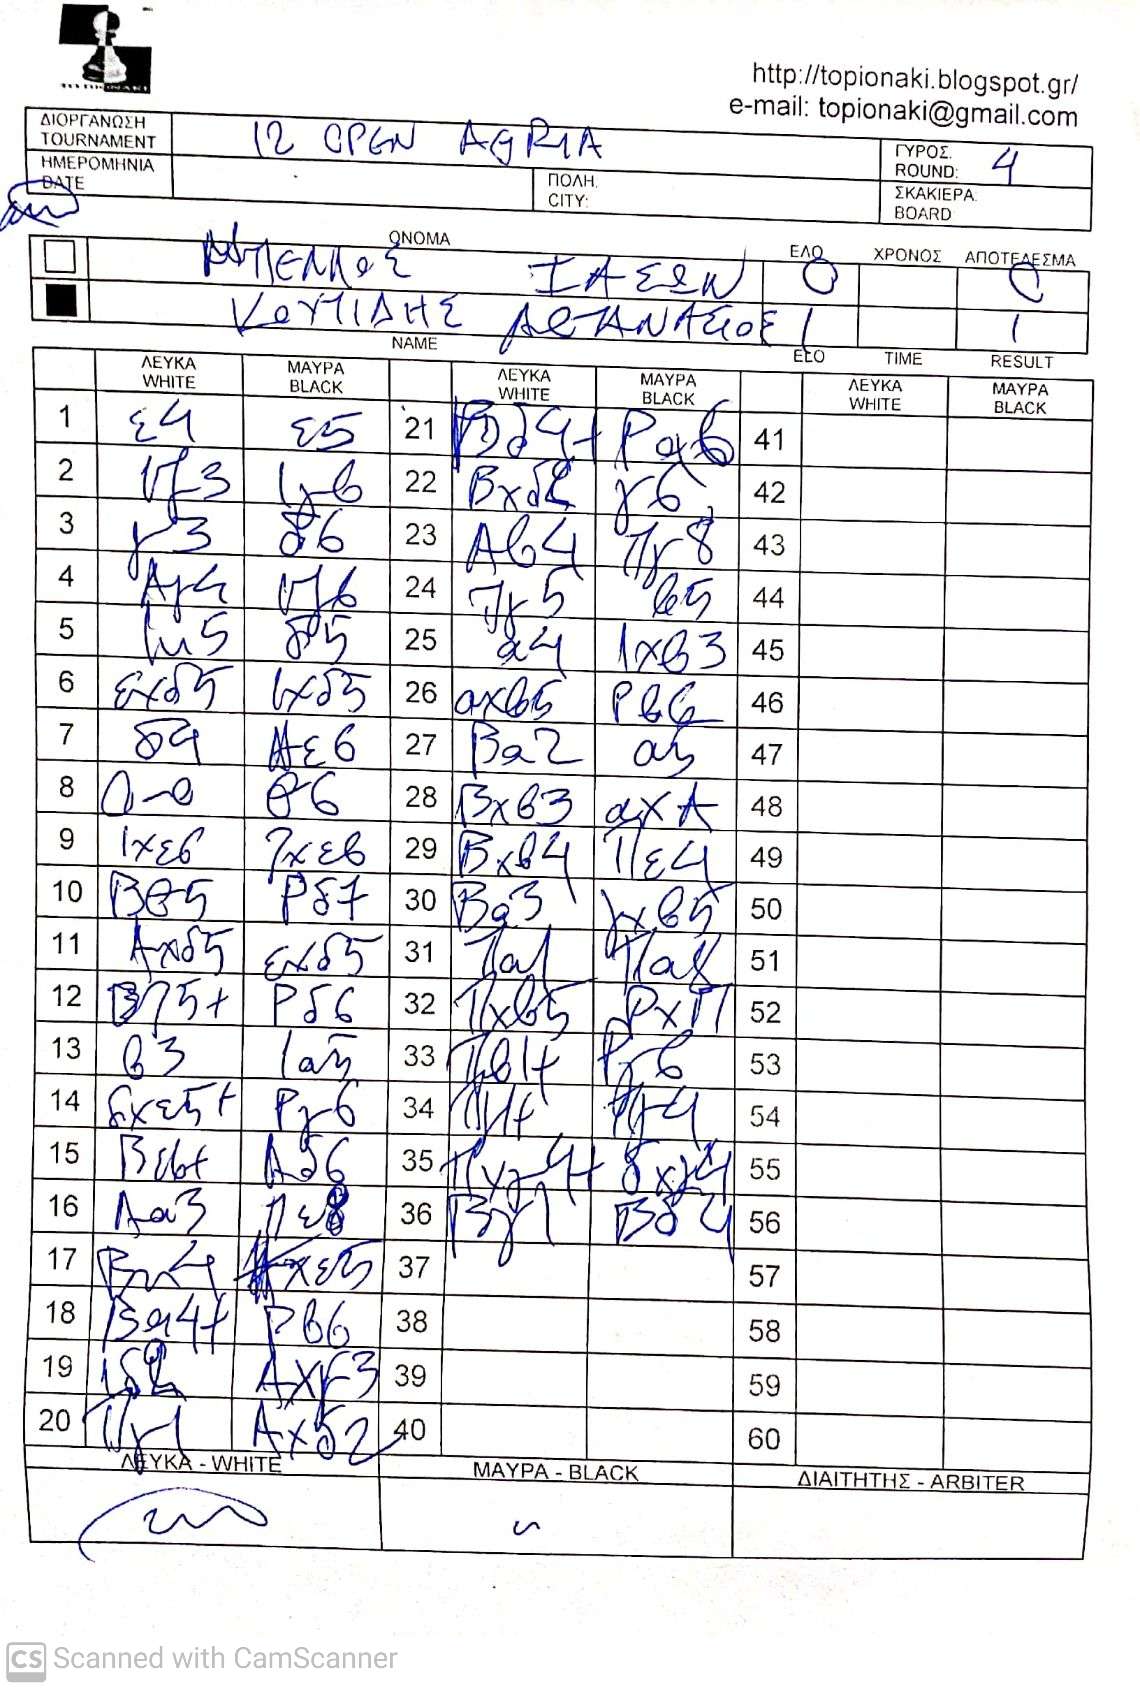 ΤΟ ΠΙΟΝΑΚΙ
http://topionaki.blogspot.gr/
e-mail: topionaki@gmail.com
ΔΙΟΡΓΑΝΩΣΗ
TOURNAMENT
12 OPEN AGRIA
ΓΥΡΟΣ.
ROUND: 4
ΗΜΕΡΟΜΗΝΙΑ
DATE
ΠΟΛΗ.
CITY:
ΣΚΑΚΙΕΡΑ.
BOARD
ΟΝΟΜΑ ΕΛΟ ΧΡΟΝΟΣ ΑΠΟΤΕΛΕΣΜΑ
ΙΑΣΩΝ 0 0
ΑΘΑΝΑΣΙΟΣ 1
NAME ELO TIME RESULT
ΛΕΥΚΑ ΜΑΥΡΑ ΛΕΥΚΑ ΜΑΥΡΑ ΛΕΥΚΑ ΜΑΥΡΑ
WHITE BLACK WHITE BLACK WHITE BLACK
1 ε4 ε5 21 Βδ4+ Ρα6 41
2 Ιζ3 Ιγ6 22 Βχδ2 γ6 42
3 γ3 δ6 23 Αβ4 Πγ8 43
4 Αγ4 Ιζ6 24 Πγ5 β5 44
5 Ιη5 δ5 25 α4 Ιχβ3 45
6 εχδ5 Ιχδ5 26 αχβ5 Ρβ6 46
7 δ4 Αε6 27 Βα2 α5 47
8 0-0 θ6 28 Βχβ3 αχΑ 48
9 Ιχε6 ζχε6 29 Βχβ4 Πε4 49
10 Βθ5 Ρδ7 30 Βα3 γχβ5 50
11 Αχδ5 εχδ5 31 Πα1 Πα8 51
12 Βζ5+ Ρδ6 32 Πχβ5 ΡχΠ 52
13 β3 Ια5 33 Πβ1+ Ργ6 53
14 δχε5+ Ργ6 34 Πγ1+ Πγ4 54
15 Βε6+ Αδ6 35 Πχγ4+ δχγ4 55
16 Αα3 Πε8 36 Βγ1 Βδ4 56
17 Βη4 Αχε5 37 57
18 Βα4+ Ρβ6 38 58
19 Ιδ2 Αχγ3 39 59
20 Πγ1 Αχδ2 40 60
ΛΕΥΚΑ - WHITE ΜΑΥΡΑ - BLACK ΔΙΑΙΤΗΤΗΣ - ARBITER
CS Scanned with CamScanner